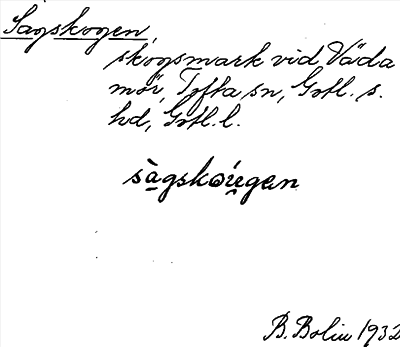 Sågskogen,
skogsmark vid Väda
mör, Tofta sn, Gotl. s.
hd, Gotl. l.
B. Bolin 1932